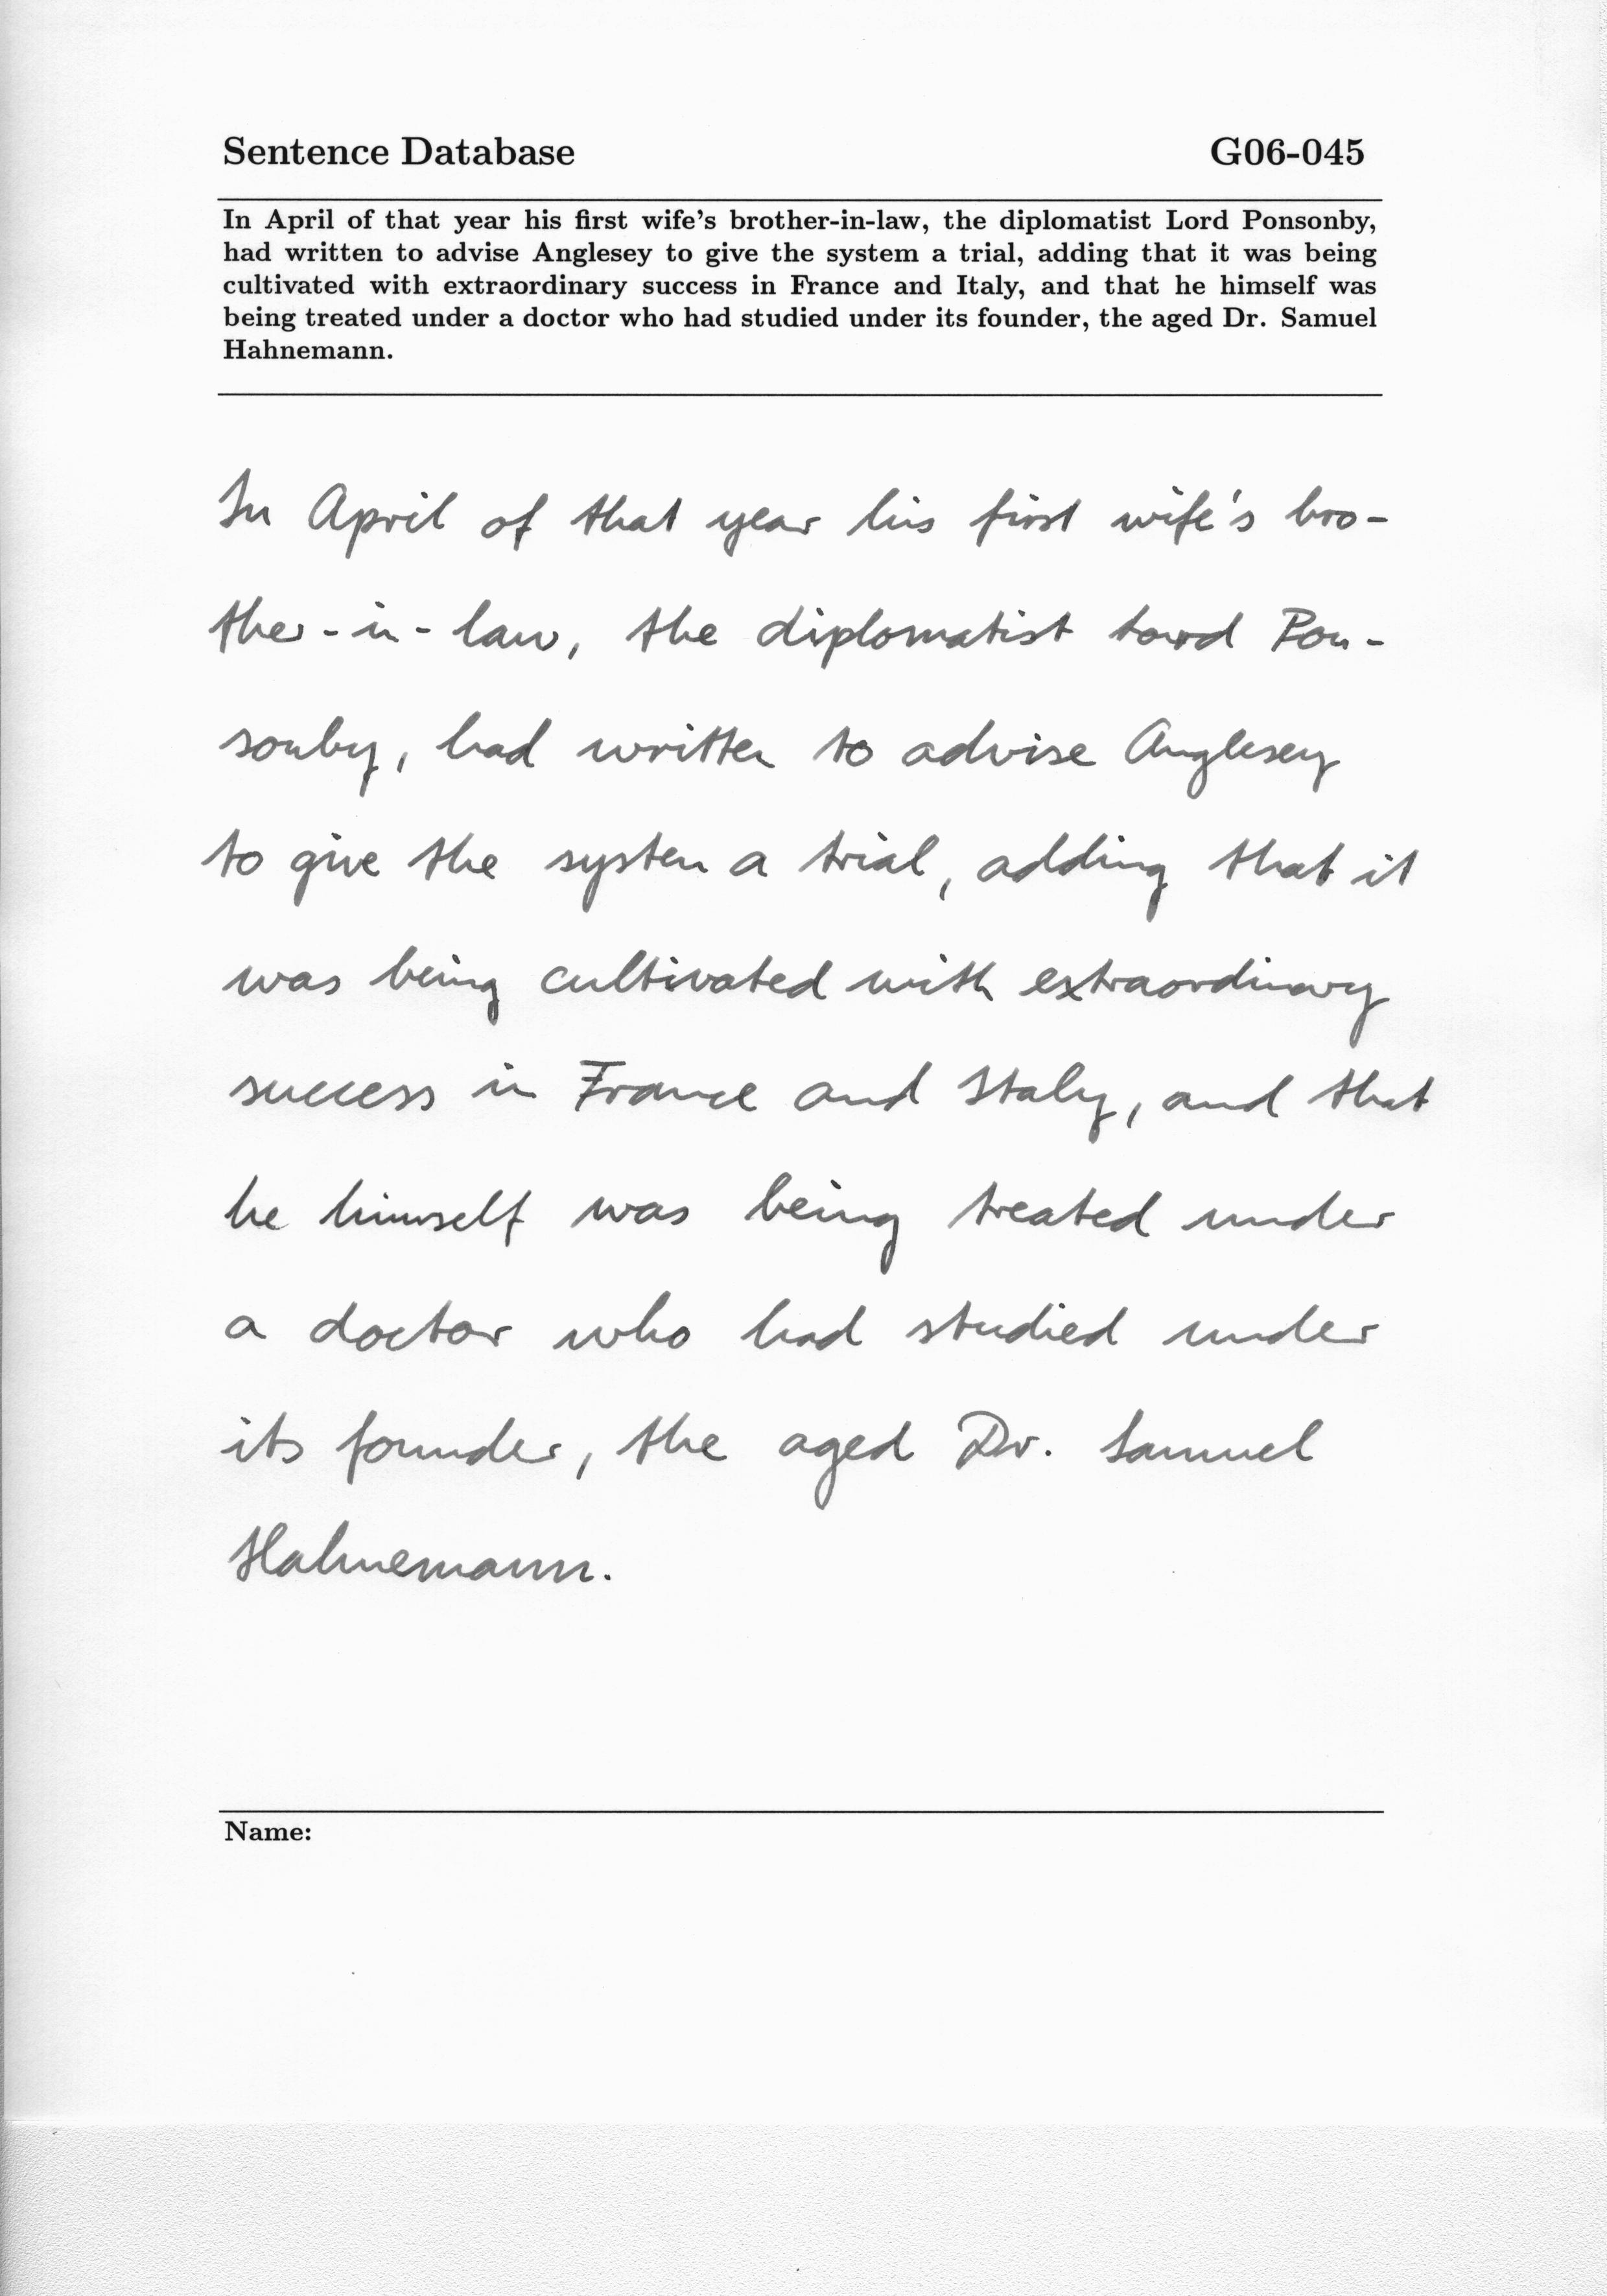 Sentence Database G06-045
In April of that year his first wife's brother-in-law, the diplomatist Lord Ponsonby,
had written to advise Anglesey to give the system a trial, adding that it was being
cultivated with extraordinary success in France and Italy, and that he himself was
being treated under a doctor who had studied under its founder, the aged Dr. Samuel
Hahnemann.
In April of that year his first wife's bro-
ther-in-law, the diplomatist Lord Pon-
sonby, had written to advise Anglesey
to give the system a trial, adding that it
was being cultivated with extraordinary
success in France and Italy, and that
he himself was being treated under
a doctor who had studied under
its founder, the aged Dr. Samuel
Hahnemann.
Name: